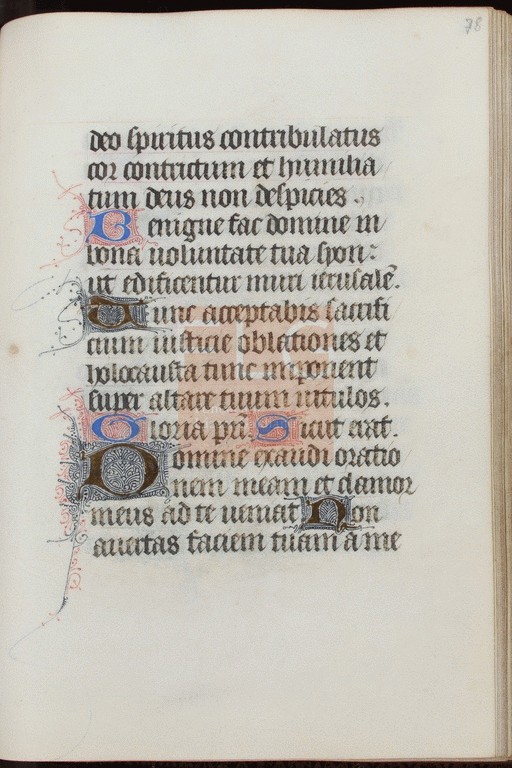 78
deo spiritus contribulatus
cor contrictum et humilia
tum deus non despicies.
Benigne fac domine in
bona uoluntate tua syon:
ut edificentur muri ierusalē.
Tunc acceptabis sacrifi
cium iusticie oblationes et
holocausta tunc imponent
super altare tuum uitulos.
Gloria pri. Sicut erat.
Domine exaudi oratio
nem meam et clamor
meus ad te ueniat Non
auertas faciem tuam a me